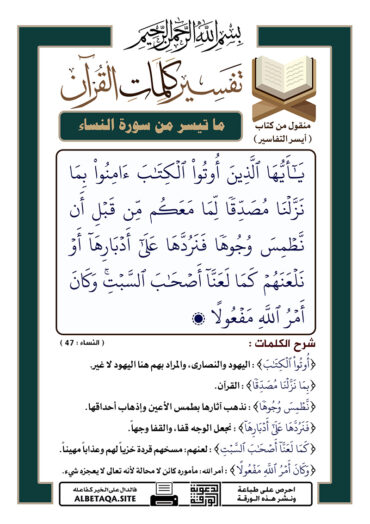 بِسْمِ اللَّهِ الرَّحْمَٰنِ الرَّحِيمِ
تفسير كلمات القرآن
ما تيسر من سورة النساء
منقول من كتاب
( أيسر التفاسير )
يَـٰٓأَيُّهَا ٱلَّذِينَ أُوتُوا۟ ٱلْكِتَـٰبَ ءَامِنُوا۟ بِمَا
نَزَّلْنَا مُصَدِّقًا لِّمَا مَعَكُم مِّن قَبْلِ أَن
نَّطْمِسَ وُجُوهًا فَنَرُدَّهَا عَلَىٰٓ أَدْبَارِهَآ أَوْ
نَلْعَنَهُمْ كَمَا لَعَنَّآ أَصْحَـٰبَ ٱلسَّبْتِ ۚ وَكَانَ
أَمْرُ ٱللَّهِ مَفْعُولًا
شرح الكلمات :
( النساء : 47 )
﴿أُوتُوا۟ ٱلْكِتَـٰبَ﴾ : اليهود والنصارى، والمراد بهم هنا اليهود لا غير.
﴿بِمَا نَزَّلْنَا مُصَدِّقًا﴾ : القرآن.
﴿نَّطْمِسَ وُجُوهًا﴾ : نذهب آثارها بطمس الأعين وإذهاب أحداقها.
﴿فَنَرُدَّهَا عَلَىٰٓ أَدْبَارِهَآ﴾ : نجعل الوجه قفا، والقفا وجهاً.
﴿كَمَا لَعَنَّآ أَصْحَـٰبَ ٱلسَّبْتِ﴾ : لعنهم: مسخهم قردة خزياً لهم وعذاباً مهيناً.
﴿وَكَانَ أَمْرُ ٱللَّهِ مَفْعُولًا﴾ : أمر الله : مأموره كائن لا محالة لأنه تعالى لا يعجزه شيء.
احرص على طباعة
ونشر هذه الورقة
الدعوية
الورقة
فالدال على الخير كفاعله
ALBETAQA.SITE